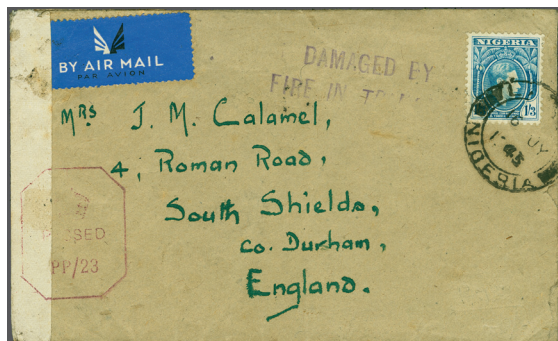 BY AIR MAIL
PAR AVION
DAMAGED BY
FIRE IN
NIGERIA
1/3
Mrs J. M. Calamel,
4, Roman Road,
South Shields,
co. Durham,
England.
PASSED
PP/23